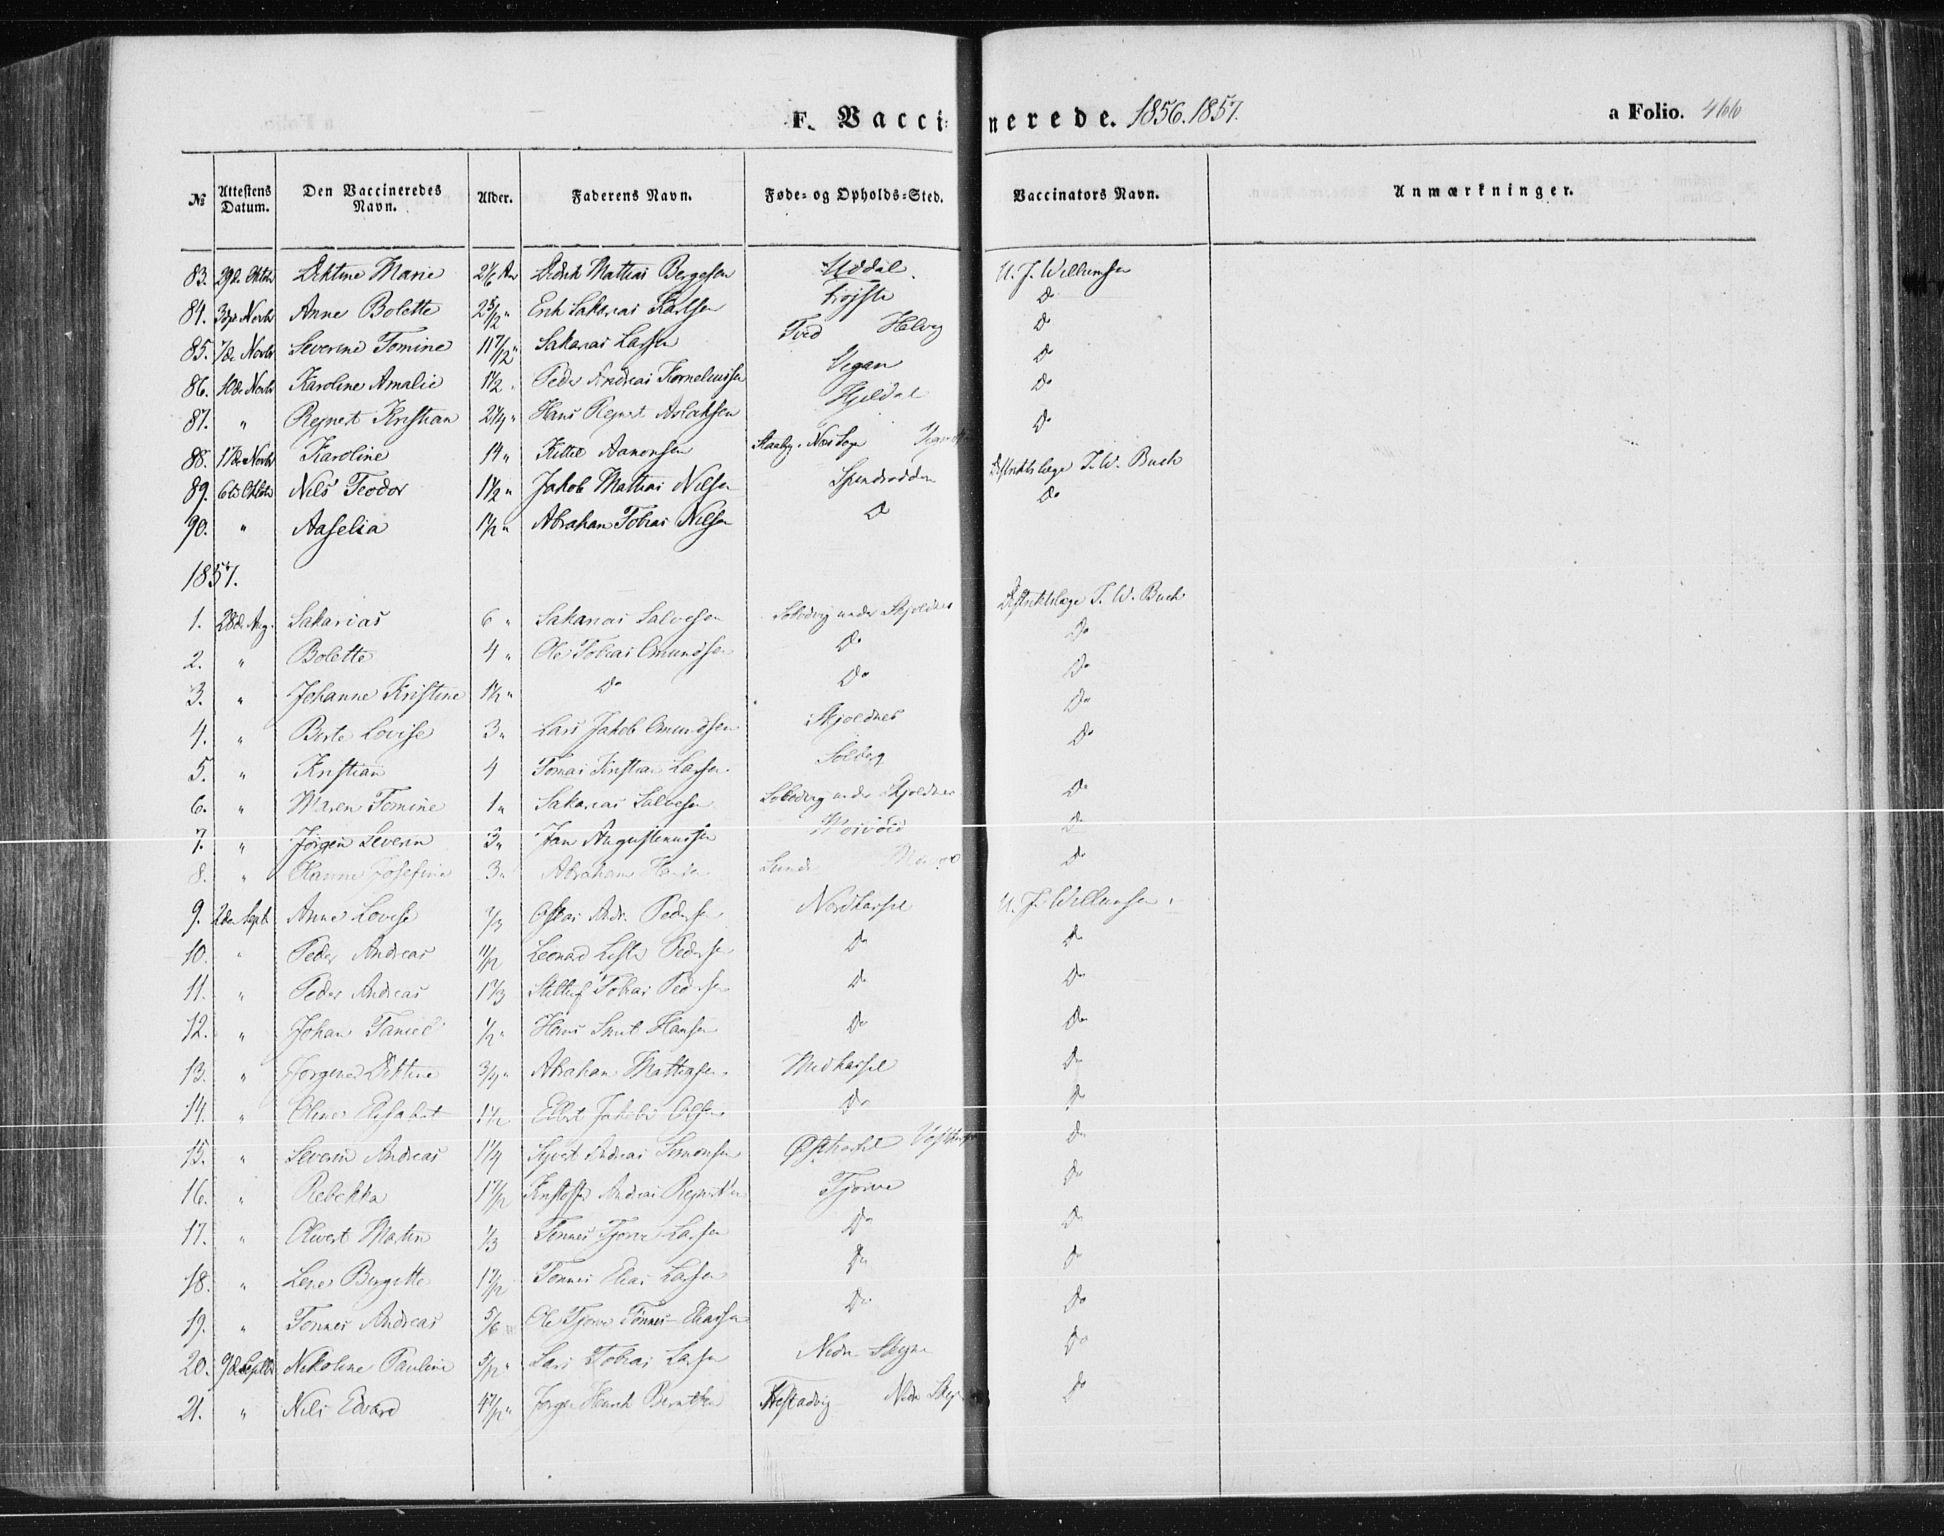 F. Vaccinerede. 1856.1857.
a Folio. 466
№ Attestens Datum. Den Vaccineredes Navn. Alder. Faderens Navn. Føde- og Opholds-Sted. Vaccinators Navn. Anmærkninger.
83. 29de Oktbr Diktine Marie 2 1/6 Aar Didrik Mattias Bergesen Uddal U. J. Willumsen
84. 3die Novbr Anne Bolette 2 5/12 " Erik Sakarias Karlsen Do
85. 7de Novbr Severine Tomine 11 7/12 " Sakarias Larsen Tved Helvig Do
86. 10de Novbr Karoline Amalie 1 1/2 Peder Andreas Kornelius­sen Vegan Do
87. " Reinert Kristian 2 1/4 " Hans Reinert Aslaksen Hjeldal Do
88. 17de Novbr Karoline 14 " Kittel Aanonsen Do
89. 6te Oktbr Nils Teodor 1 1/2 " Jakob Mattias Nilsen Spindsodden Distriktslæge T. W. Buch
90. " Aaselia 1 1/2 " Abraham Tobias Nilsen Do Do
1857.
1. 28de Aug. Sakarias 6 " Sakarias Salvesen under Skjoldnes Distriktslæge T. W. Buch
2. " Bolette 4 " Ole Tobias Omundsen Do Do
3. " Johanne Kristine 1 1/2 " Do Do Do
4. " Berte Lovise 3 " Lars Jakob Omundsen Skjoldnes Do
5. " Kristian 4 Tomas Kristian Larsen Solberg Do
6. " Maren Tomine 1 " Sakarias Salvesen under Skjoldnes Do
7. " Jørgen Severin 3 " Jan Augustinussen Do
8. " Hanne Josefine 3 " Abraham Hansen Lunde Do
9. 2den Sept. Anne Lovise 1/3 Andr. Pedersen Nordhassel U. J. Willumsen
10. " Peder Andreas 11/12 Leonard Lister Pedersen Do Do
11. " Peder Andreas 1 1/3 Tobias Pedersen Do Do
12. " Johan Daniel 1/2 " Hans Hansen Do Do
13. " Jørgene Diktine 3/4 " Abraham Mathiasen Midhassel Do
14. " Oline Elisabet 1 1/2 Elbert Jakobi Olsen Do Do
15. " Severin Andreas 1 1/4 Syvert Andreas Simonsen Østhassel Do
16. " Rebekka 1 1/2 Kristoffer Andreas Reinertsen Tjørve Do
17. " Olvert Martin 1/3 Tønnes Tjørve Larsen Do Do
18. " Lene Birgitte 1 1/2 Tønnes Elias Larsen Do Do
19. " Tønnes Andreas 5/6 Ole Tjørve Tønnes Eliassen Do Do
20. 9de Septbr Nikoline Pauline 5/12 " Lars Tobias Larsen Nedre Do
21. " Nils Edvard 4 7/12 " Jørgen Henrik Berntsen Nedre Do